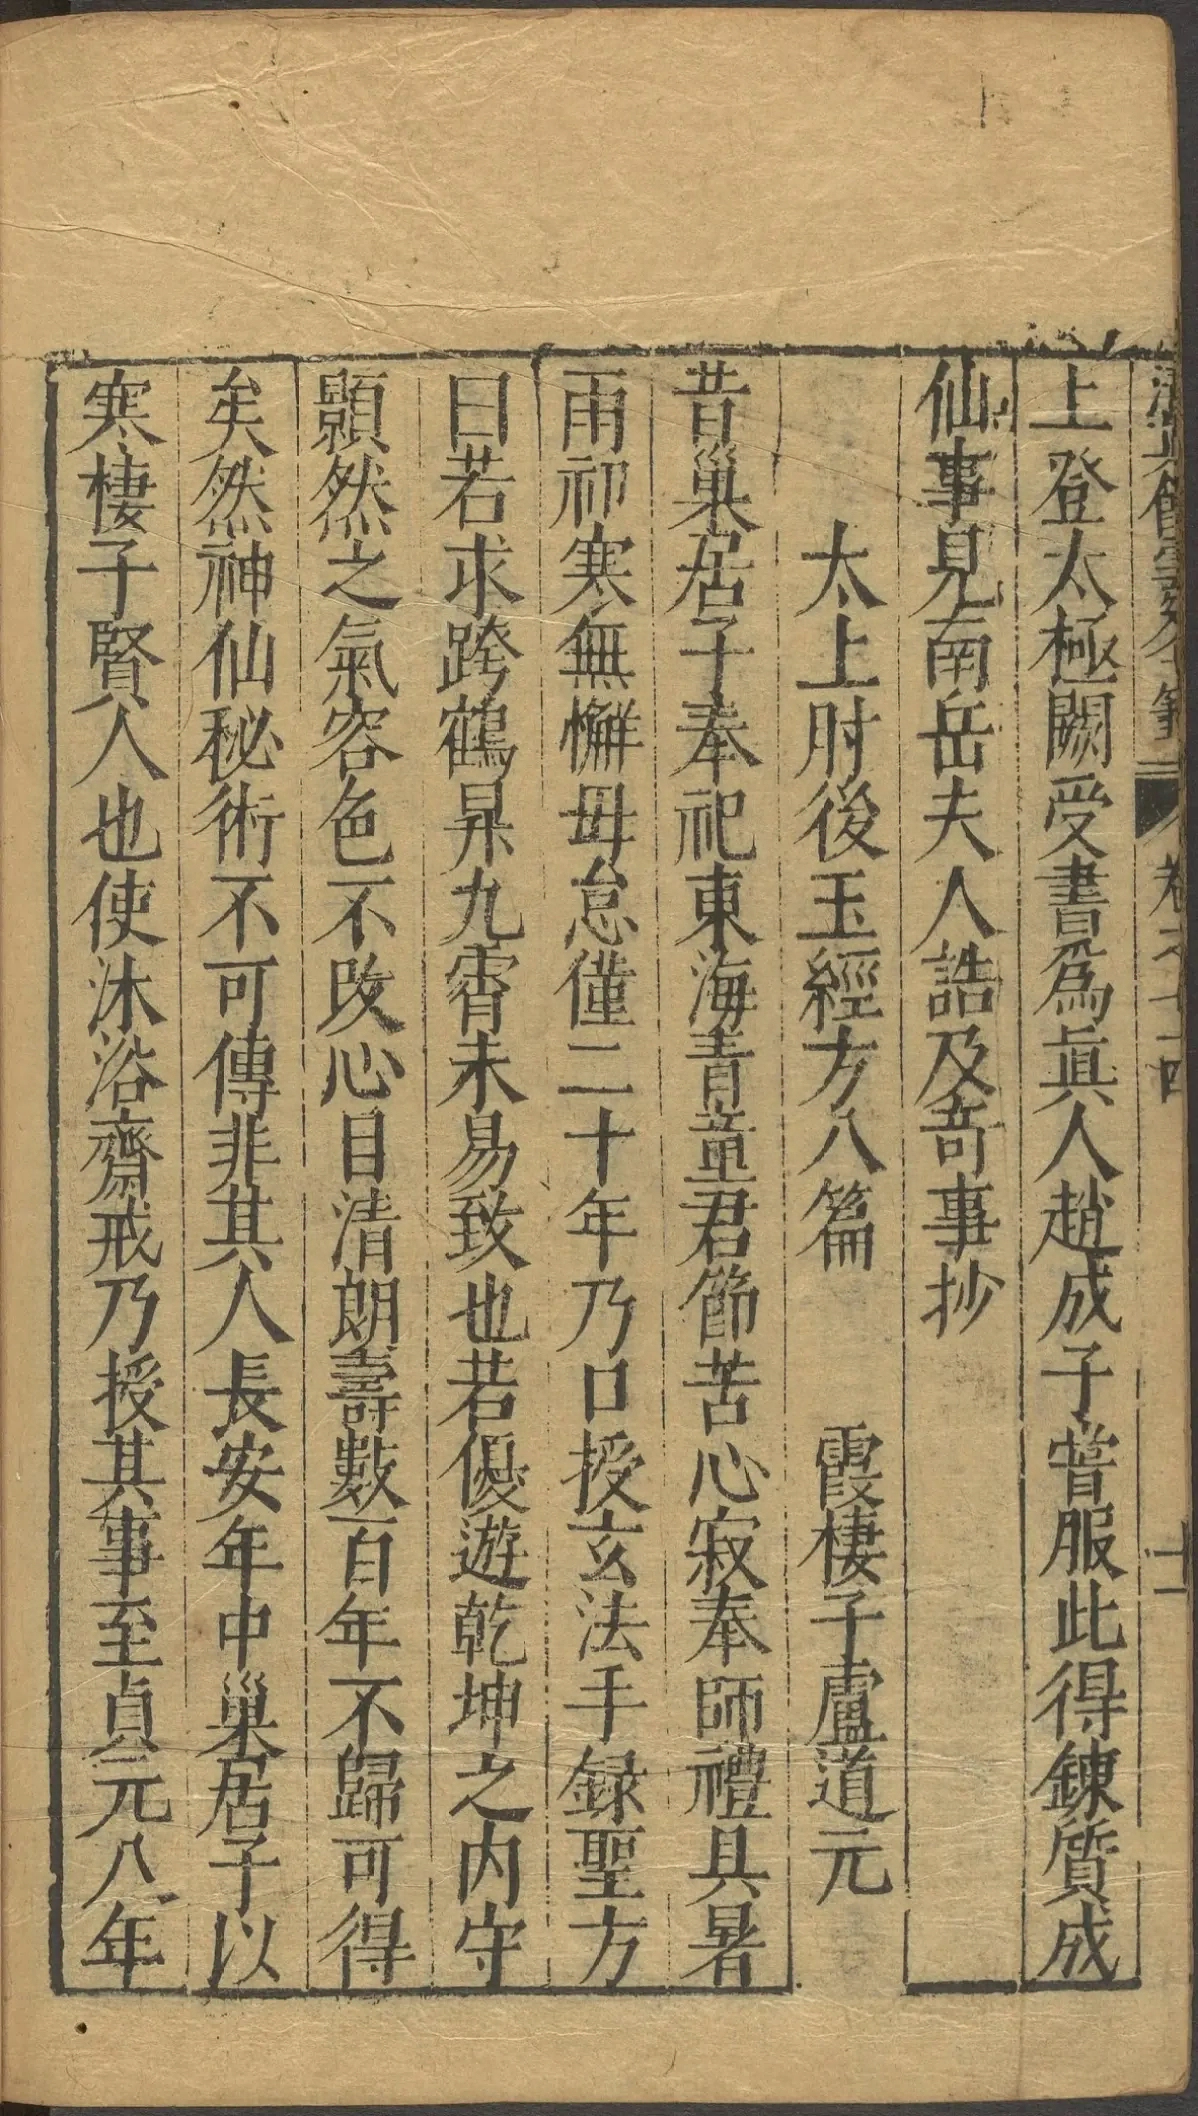 上登太極闕受書爲眞人趙成子嘗服此得鍊質成
仙事見南岳夫人誥及奇事抄
太上肘後玉經方八篇 霞棲子盧道元
昔巢居子奉祀東海青童君節苦心寂奉師禮具暑
雨祁寒無懈毋怠僅二十年乃口授玄法手録聖方
曰若求跨鶴昇九霄未易致也若優遊乾坤之內守
顥然之氣容色不改心目清朗壽數百年不歸可得
矣然神仙秘術不可傳非其人長安年中巢居子以
寒棲子賢人也使沐浴齋戒乃授其事至貞元八年